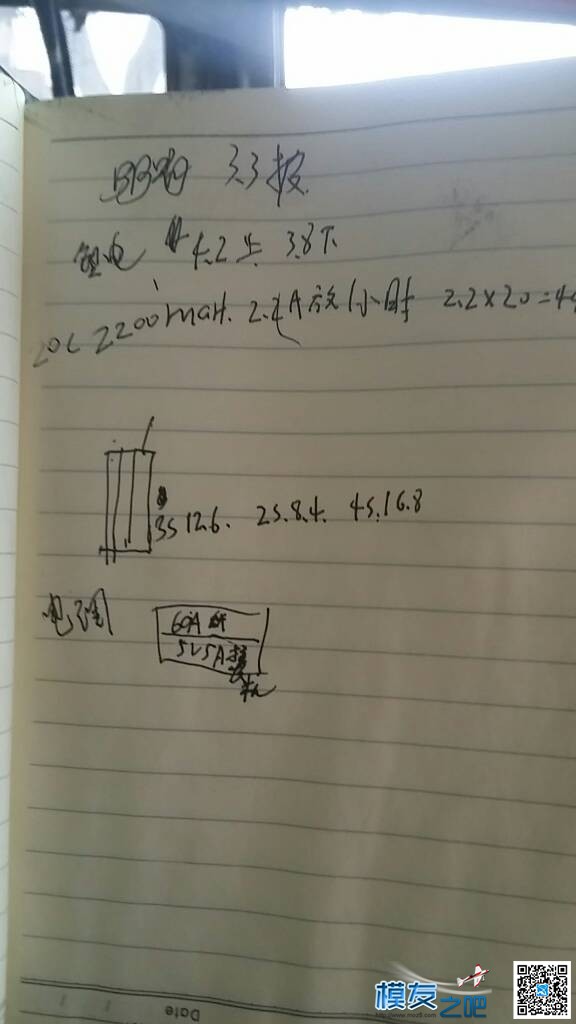 BB响 3.3报
锂电 4.2上 3.8下
20C 2200mAH. 2.2A放1小时 2.2×20=44
3S 12.6. 2S.8.4. 4S.16.8
电调
60A
5V5A接
收机
Date
模友之吧